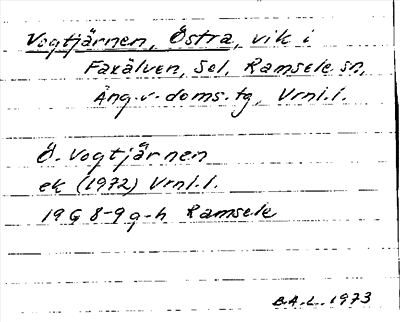 Vogtjärnen, Östra, vik i
Faxälven, Sel, Ramsele sn,
Ång. v. doms. tg, Vrnl. l.
Ö. Vogtjärnen
ek (1972) Vrnl. l.
19G 8-9 g-h Ramsele
B.A.L. 1973